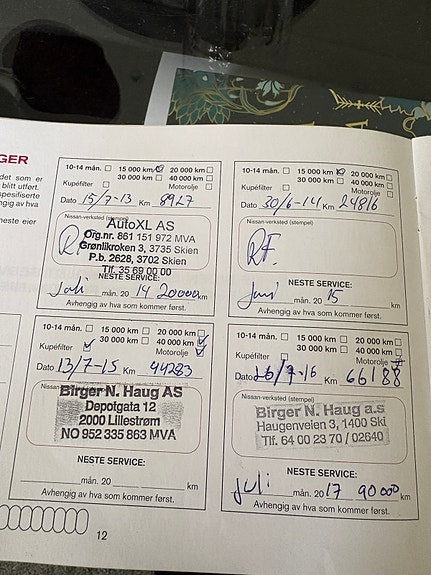 GER
det som er
blitt utført.
spesifiserte
gig av hva
neste eier
10-14 mån. 15 000 km 20 000 km
30 000 km 40 000 km
Kupéfilter Motorolje
Dato 15/7-13 Km 8927
Nissan-verksted (stempel)
AutoXL AS
Org.nr. 861 151 972 MVA
Grønlikroken 3, 3735 Skien
P.b. 2628, 3702 Skien
Tlf. 35 69 00 00
NESTE SERVICE:
Juli mån. 20 14 20000 km
Avhengig av hva som kommer først.
10-14 mån. 15 000 km 20 000 km
30 000 km 40 000 km
Kupéfilter Motorolje
Dato 30/6-14 Km 24816
Nissan-verksted (stempel)
RF.
NESTE SERVICE:
Juni mån. 20 15 km
Avhengig av hva som kommer først.
10-14 mån. 15 000 km 20 000 km
30 000 km 40 000 km
Kupéfilter Motorolje
Dato 13/7-15 Km 44283
Nissan-verksted (stempel)
Birger N. Haug AS
Depotgata 12
2000 Lillestrøm
NO 952 335 863 MVA
NESTE SERVICE:
mån. 20 km
Avhengig av hva som kommer først.
10-14 mån. 15 000 km 20 000 km
30 000 km 40 000 km
Kupéfilter Motorolje
Dato Km 66188
Nissan-verksted (stempel)
Birger N. Haug a.s
Haugenveien 3, 1400 Ski
Tlf. 64 00 23 70 / 02640
NESTE SERVICE:
juli mån. 20 17 90000 km
Avhengig av hva som kommer først.
12